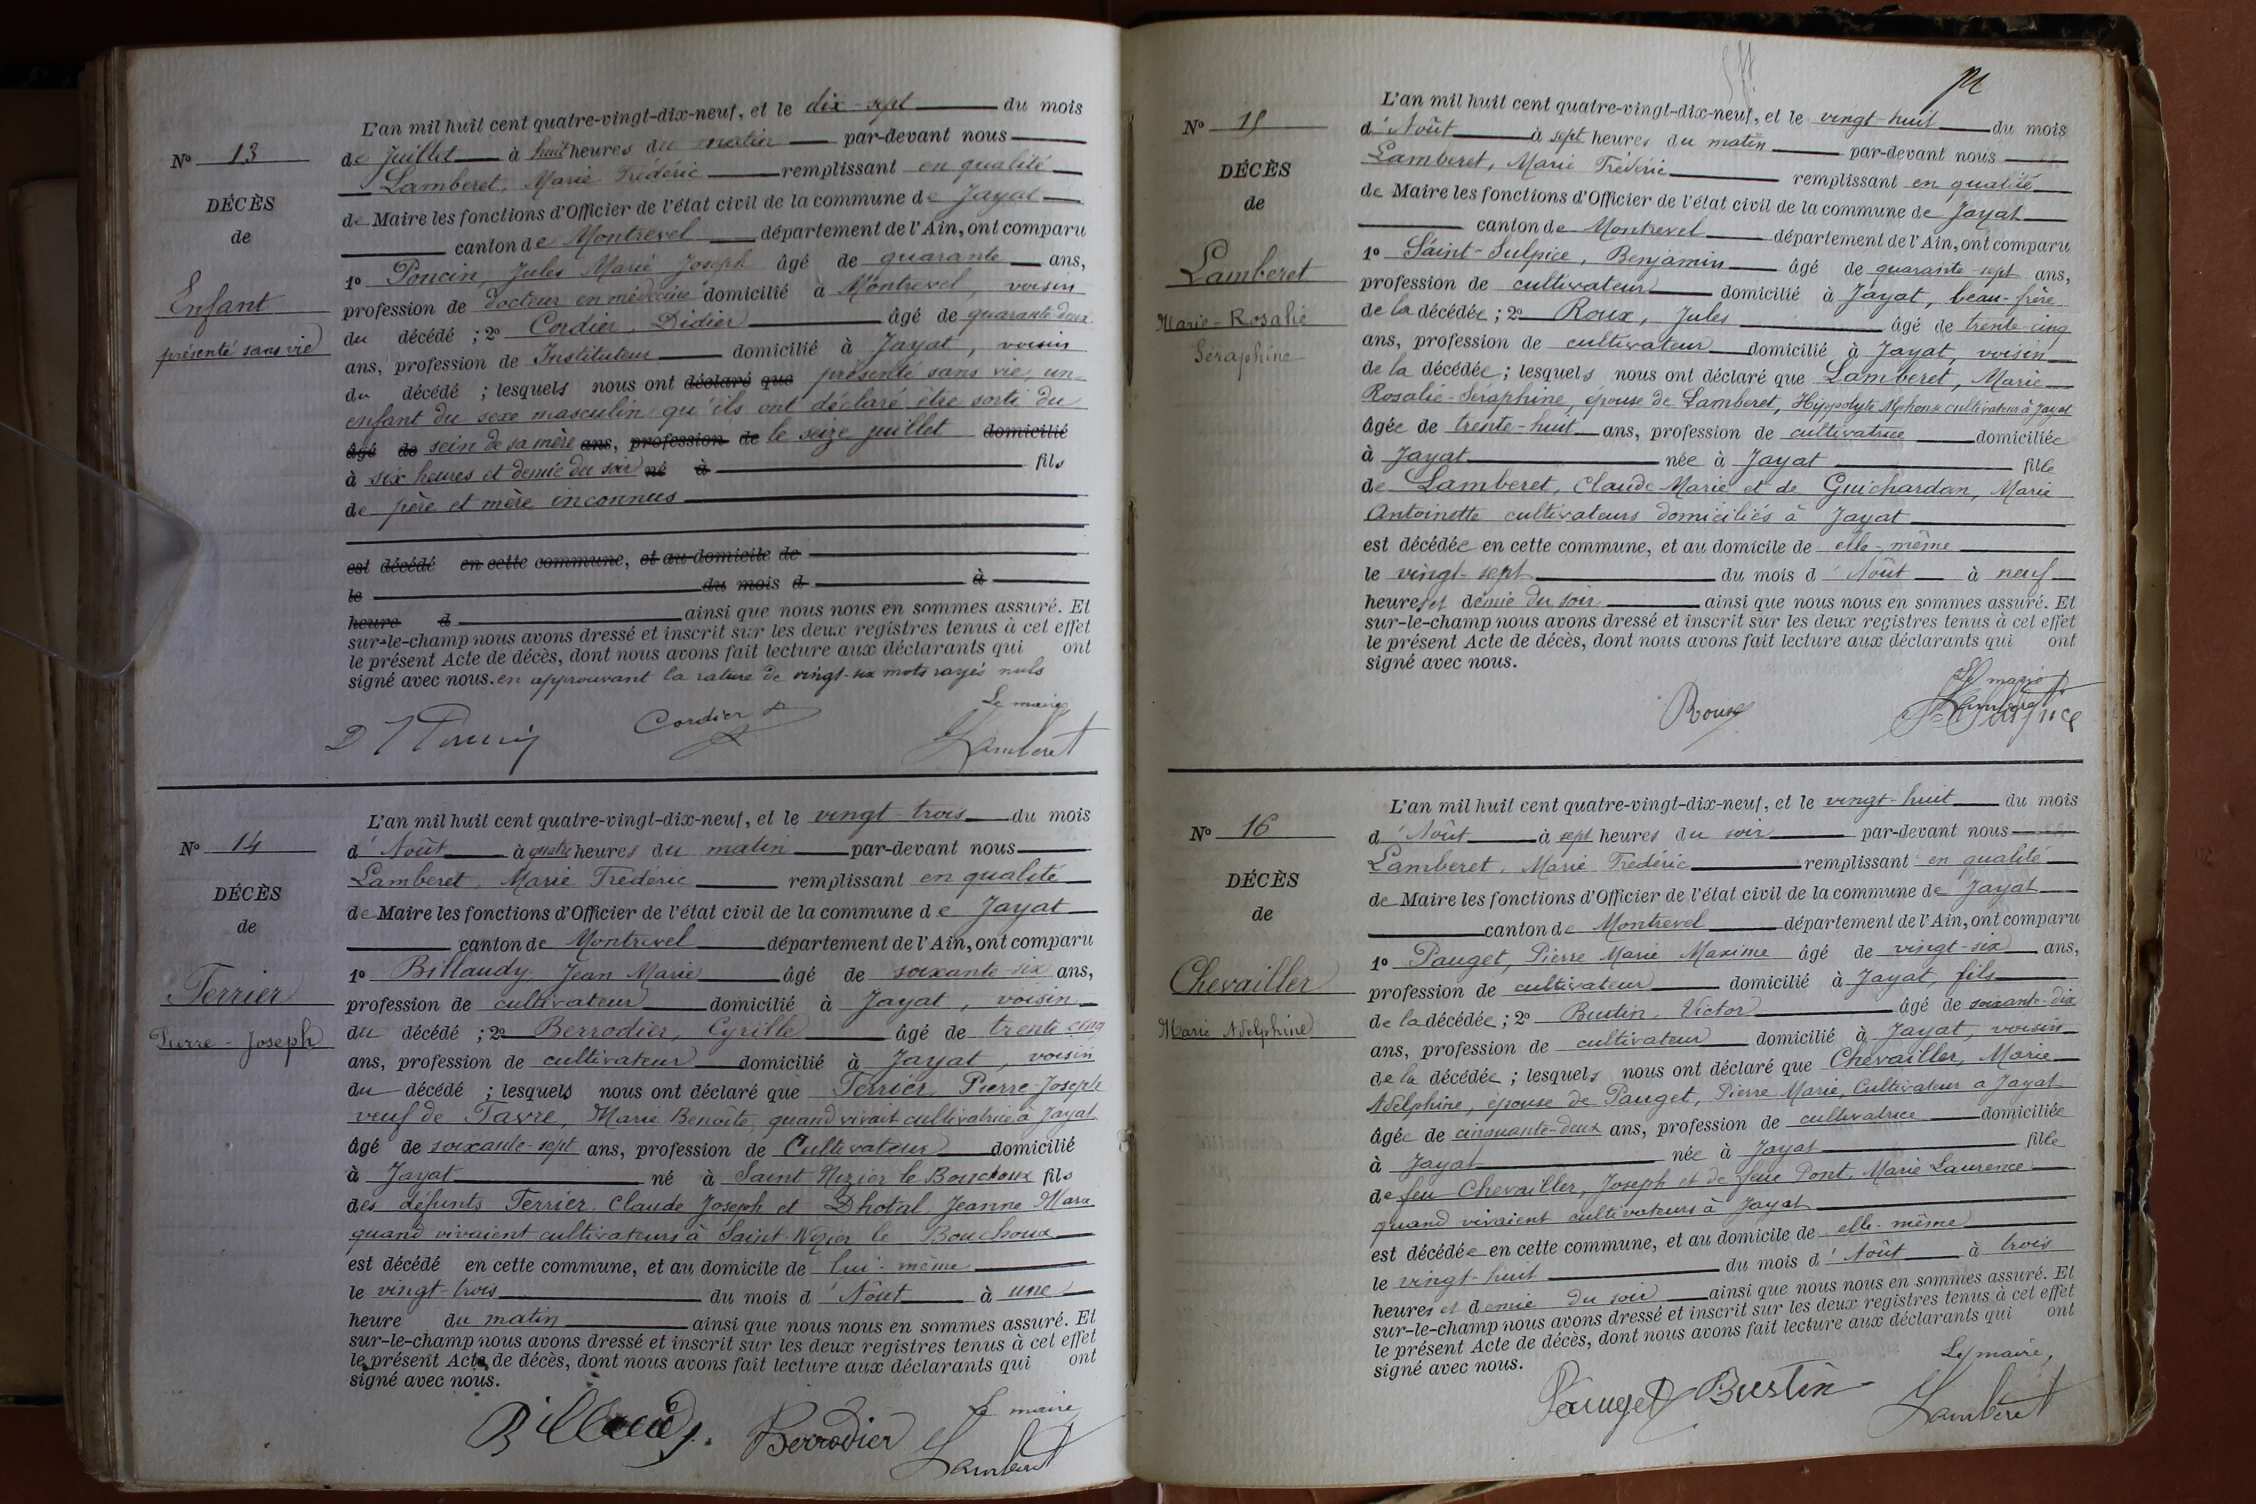 L'an mil huit cent quatre-vingt-dix-neuf, et le dix-sept du mois
N° 13
de Juillet à huit heures du matin par-devant nous
Lamberet, Marie Frédéric remplissant en qualité
DÉCÈS
de Maire les fonctions d'Officier de l'état civil de la commune de Jayat
de
canton de Montrevel département de l'Ain, ont comparu
1° Poncin, Jules Marie Joseph âgé de quarante ans,
Enfant
profession de docteur en médecine domicilié à Montrevel, voisin
présenté sans vie
du décédé ; 2° Cordier, Didier âgé de quarante deux
ans, profession de Instituteur domicilié à Jayat, voisin
du décédé ; lesquels nous ont déclaré que présenté sans vie, un
enfant du sexe masculin qu'ils ont déclaré être sorti du
âgé de sein de sa mère ans, profession de le seize juillet domicilié
à six heures et demie du soir né à fils
de père et mère inconnus
est décédé en cette commune, et au domicile de
le du mois d à
heure d ainsi que nous nous en sommes assuré. Et
sur-le-champ nous avons dressé et inscrit sur les deux registres tenus à cet effet
le présent Acte de décès, dont nous avons fait lecture aux déclarants qui ont
signé avec nous. en approuvant la rature de vingt-six mots rayés nuls
Le maire
D J Poncin Cordier Lamberet
L'an mil huit cent quatre-vingt-dix-neuf, et le vingt-trois du mois
N° 14
d'Août à quatre heures du matin par-devant nous
Lamberet, Marie Frédéric remplissant en qualité
DÉCÈS
de Maire les fonctions d'Officier de l'état civil de la commune de Jayat
de
canton de Montrevel département de l'Ain, ont comparu
1° Billaudy, Jean Marie âgé de soixante-six ans,
Terrier
profession de cultivateur domicilié à Jayat, voisin
Pierre-Joseph
du décédé ; 2° Berrodier, Cyrille âgé de trente cinq
ans, profession de cultivateur domicilié à Jayat, voisin
du décédé ; lesquels nous ont déclaré que Terrier, Pierre-Joseph
veuf de Favre, Marie Benoîte, quand vivait cultivatrice à Jayat
âgé de soixante-sept ans, profession de Cultivateur domicilié
à Jayat né à Saint Nizier le Bouchoux fils
des défunts Terrier, Claude Joseph et Dhotal, Jeanne Marie
quand vivaient cultivateurs à Saint-Nizier le Bouchoux
est décédé en cette commune, et au domicile de lui-même
le vingt-trois du mois d'Août à une
heure du matin ainsi que nous nous en sommes assuré. Et
sur-le-champ nous avons dressé et inscrit sur les deux registres tenus à cet effet
le présent Acte de décès, dont nous avons fait lecture aux déclarants qui ont
signé avec nous.
Le maire
Billaudy. Berrodier Lamberet
L'an mil huit cent quatre-vingt-dix-neuf, et le vingt-huit du mois
N° 15
d'Août à sept heures du matin par-devant nous
Lamberet, Marie Frédéric remplissant en qualité
DÉCÈS
de Maire les fonctions d'Officier de l'état civil de la commune de Jayat
de
canton de Montrevel département de l'Ain, ont comparu
1° Saint-Sulpice, Benjamin âgé de quarante-sept ans,
Lamberet
profession de cultivateur domicilié à Jayat, beau-frère
Marie-Rosalie
de la décédée ; 2° Roux, Jules âgé de trente-cinq
Séraphine
ans, profession de cultivateur domicilié à Jayat, voisin
de la décédée ; lesquels nous ont déclaré que Lamberet, Marie
Rosalie-Séraphine, épouse de Lamberet, Hippolyte Alphonse cultivateur à Jayat
âgée de trente-huit ans, profession de cultivatrice domiciliée
à Jayat née à Jayat fille
de Lamberet, Claude Marie et de Guichardan, Marie
Antoinette cultivateurs domiciliés à Jayat
est décédée en cette commune, et au domicile de elle-même
le vingt-sept du mois d'Août à neuf
heures et demie du soir ainsi que nous nous en sommes assuré. Et
sur-le-champ nous avons dressé et inscrit sur les deux registres tenus à cet effet
le présent Acte de décès, dont nous avons fait lecture aux déclarants qui ont
signé avec nous.
Le maire
Roux Lamberet
L'an mil huit cent quatre-vingt-dix-neuf, et le vingt-huit du mois
N° 16
d'Août à sept heures du soir par-devant nous
Lamberet, Marie Frédéric remplissant en qualité
DÉCÈS
de Maire les fonctions d'Officier de l'état civil de la commune de Jayat
de
canton de Montrevel département de l'Ain, ont comparu
1° Pauget, Pierre Marie Maxime âgé de vingt-six ans,
Chevailler
profession de cultivateur domicilié à Jayat, fils
Marie Adelphine
de la décédée ; 2° Bustin, Victor âgé de soixante-dix
ans, profession de cultivateur domicilié à Jayat, voisin
de la décédée ; lesquels nous ont déclaré que Chevailler, Marie
Adelphine, épouse de Pauget, Pierre Marie, Cultivateur à Jayat
âgée de cinquante-deux ans, profession de cultivatrice domiciliée
à Jayat née à Jayat fille
de feu Chevailler, Joseph et de feue Pont, Marie Laurence
quand vivaient cultivateurs à Jayat
est décédée en cette commune, et au domicile de elle-même
le vingt-huit du mois d'Août à trois
heures et demie du soir ainsi que nous nous en sommes assuré. Et
sur-le-champ nous avons dressé et inscrit sur les deux registres tenus à cet effet
le présent Acte de décès, dont nous avons fait lecture aux déclarants qui ont
signé avec nous.
Le maire,
Pauget Bustin Lamberet